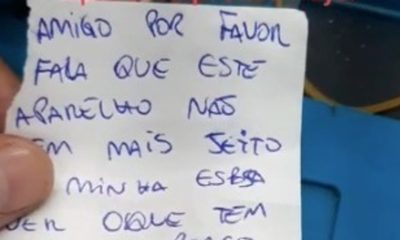 AMIGO POR FAVOR
FALA QUE ESTE
APARELHO NÃO
EM MAIS JEITO
MINHA ESPSA
UER OQUE TEM